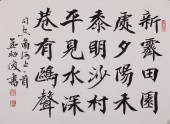 新霽田園
處夕陽禾
黍明沙村
平見水深
巷有鷗聲